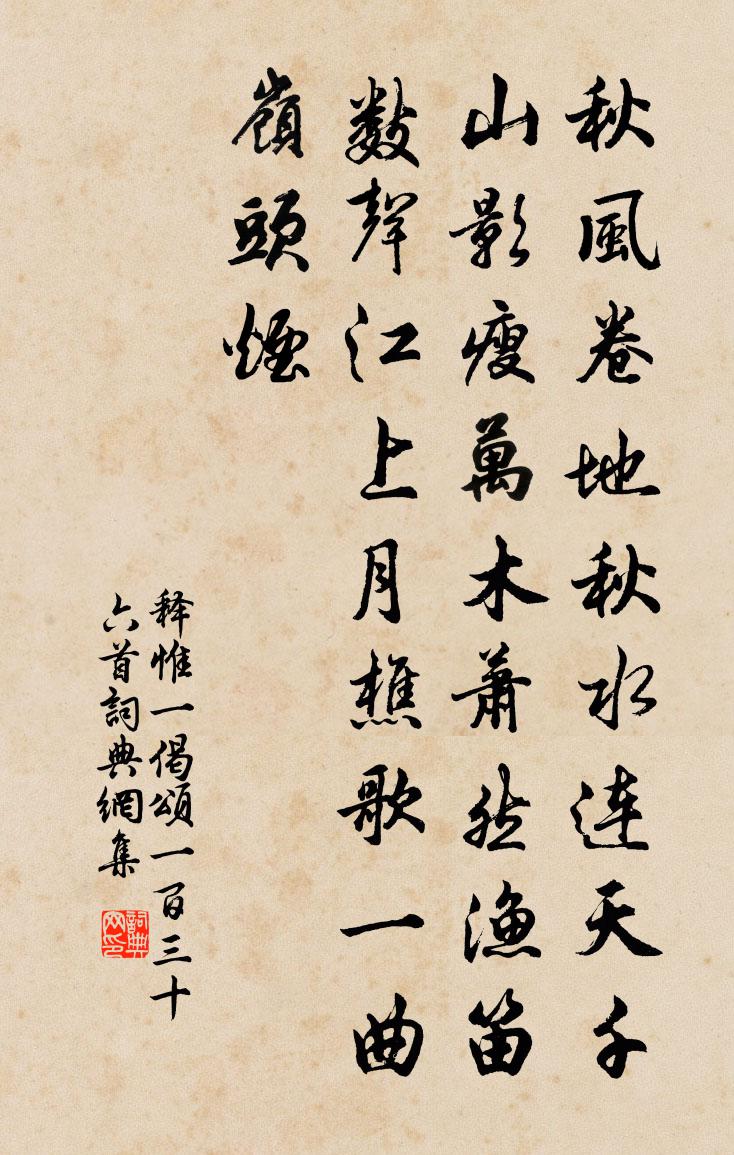 秋風卷地秋水连天千
山影瘦萬木蕭然漁笛
数聲江上月樵歌一曲
嶺頭煙
释惟一偈頌一百三十
六首詞典網集
詞典
网印